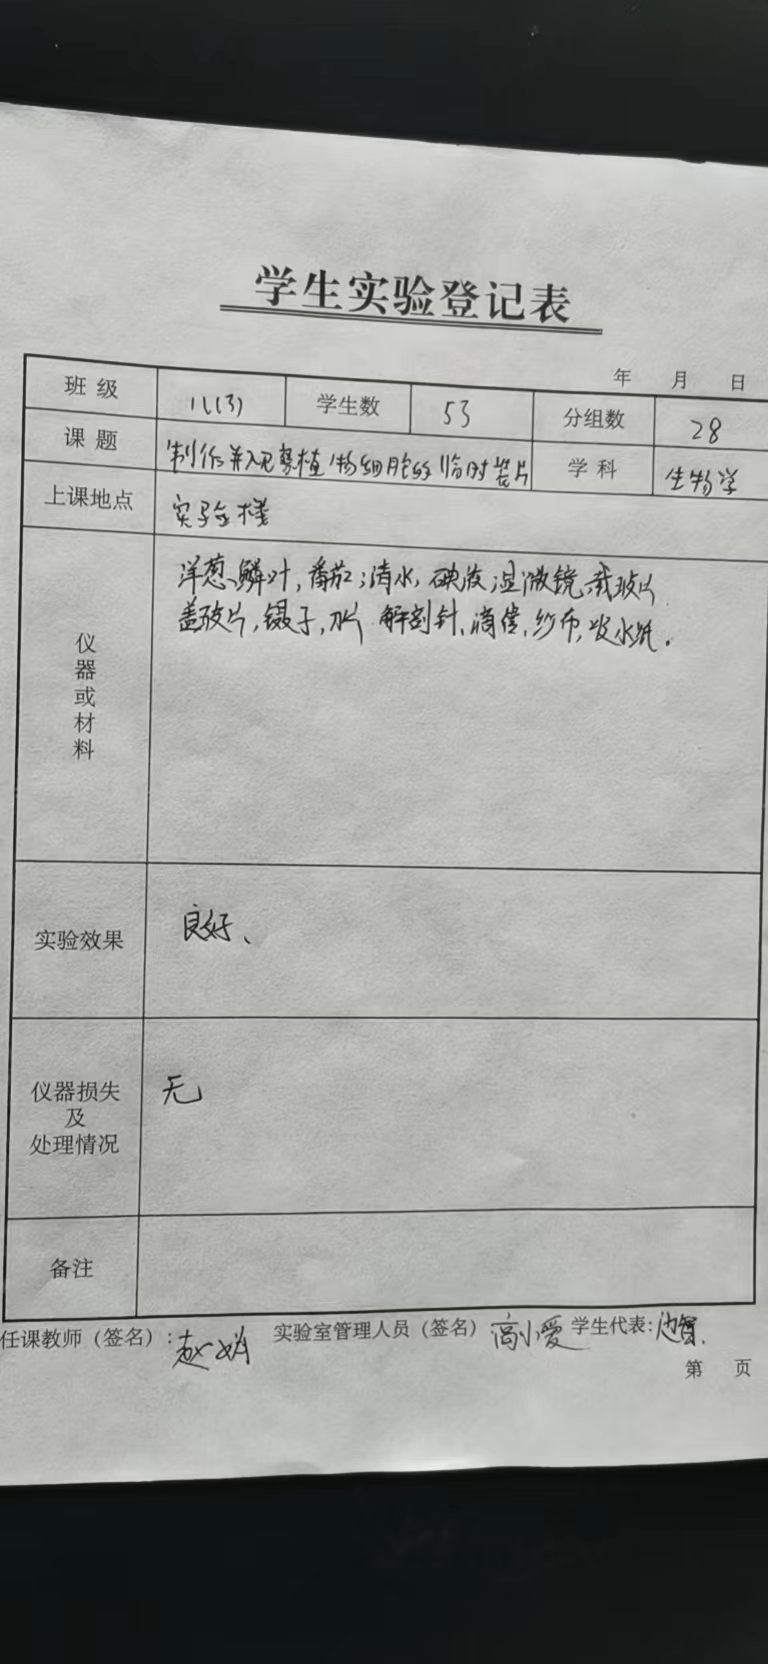 学生实验登记表
年 月 日
班级 11(3) 学生数 53 分组数 28
课题 制作并观察植物细胞的临时装片 学科 生物学
上课地点 实验楼
仪器或材料
洋葱、鳞叶，番茄；清水，碘液；显微镜，载玻片
盖玻片，镊子，刀片 解剖针、滴管，纱布，吸水纸。
实验效果 良好、
仪器损失
及
处理情况
无
备注
任课教师（签名）: 赵 娟 实验室管理人员（签名） 高小爱 学生代表:
第 页